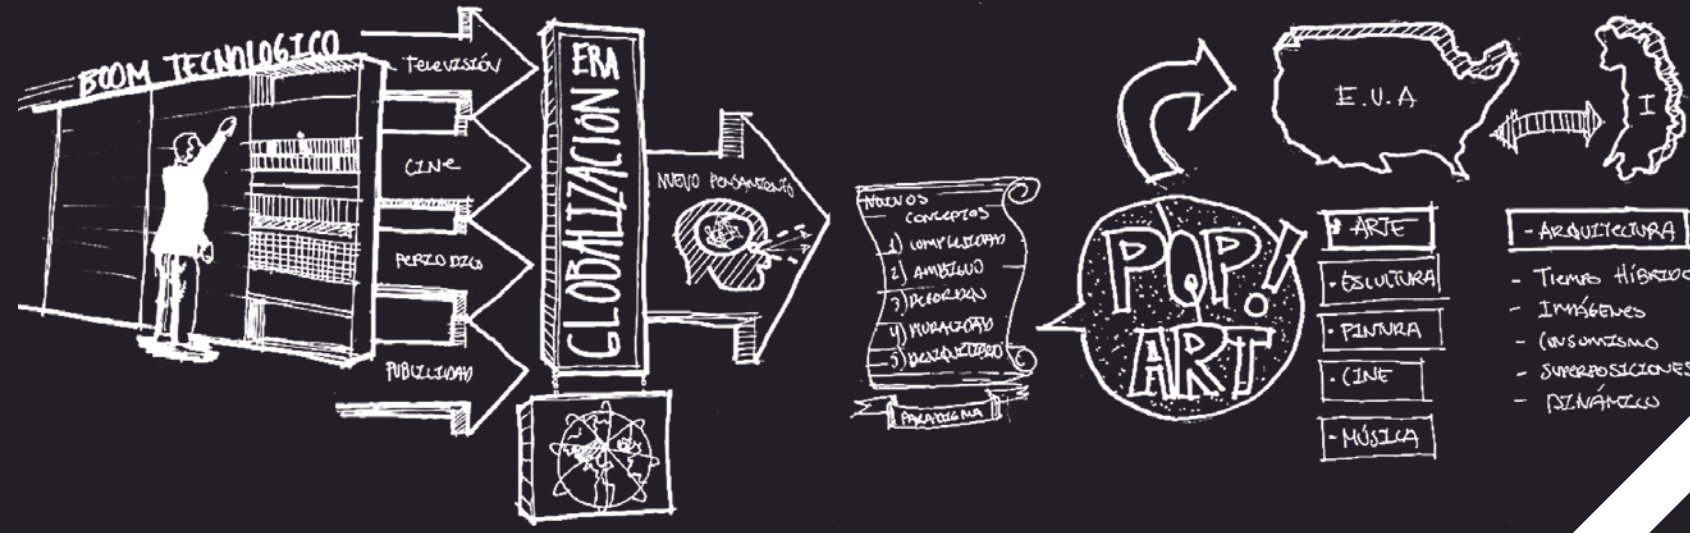 BOOM TECNOLOGICO
TELEVISIÓN
CINE
PERIODICO
PUBLICIDAD
ERA
GLOBALIZACIÓN
NUEVO PENSAMIENTO
NUEVOS
CONCEPTOS
1) COMPLEJIDAD
2) AMBIGUO
3) DESORDEN
4) PLURALIDAD
5) DESEQUILIBRIO
PARADIGMA
POP!
ART
E.U.A
I
- ARTE
- ESCULTURA
- PINTURA
- CINE
- MÚSICA
- ARQUITECTURA
- TIEMPO HÍBRIDO
- IMÁGENES
- CONSUMISMO
- SUPERPOSICIONES
- DINÁMICO